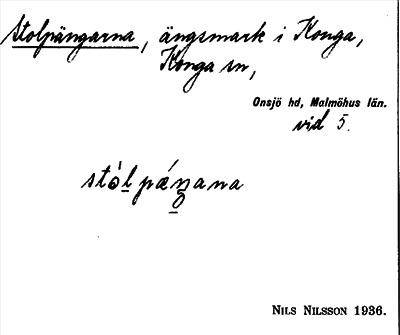 Stolpängarna, ängsmark i Konga,
Konga sn,
Onsjö hd, Malmöhus län.
vid 5.
stòl pǽŋana
NILS NILSSON 1936.